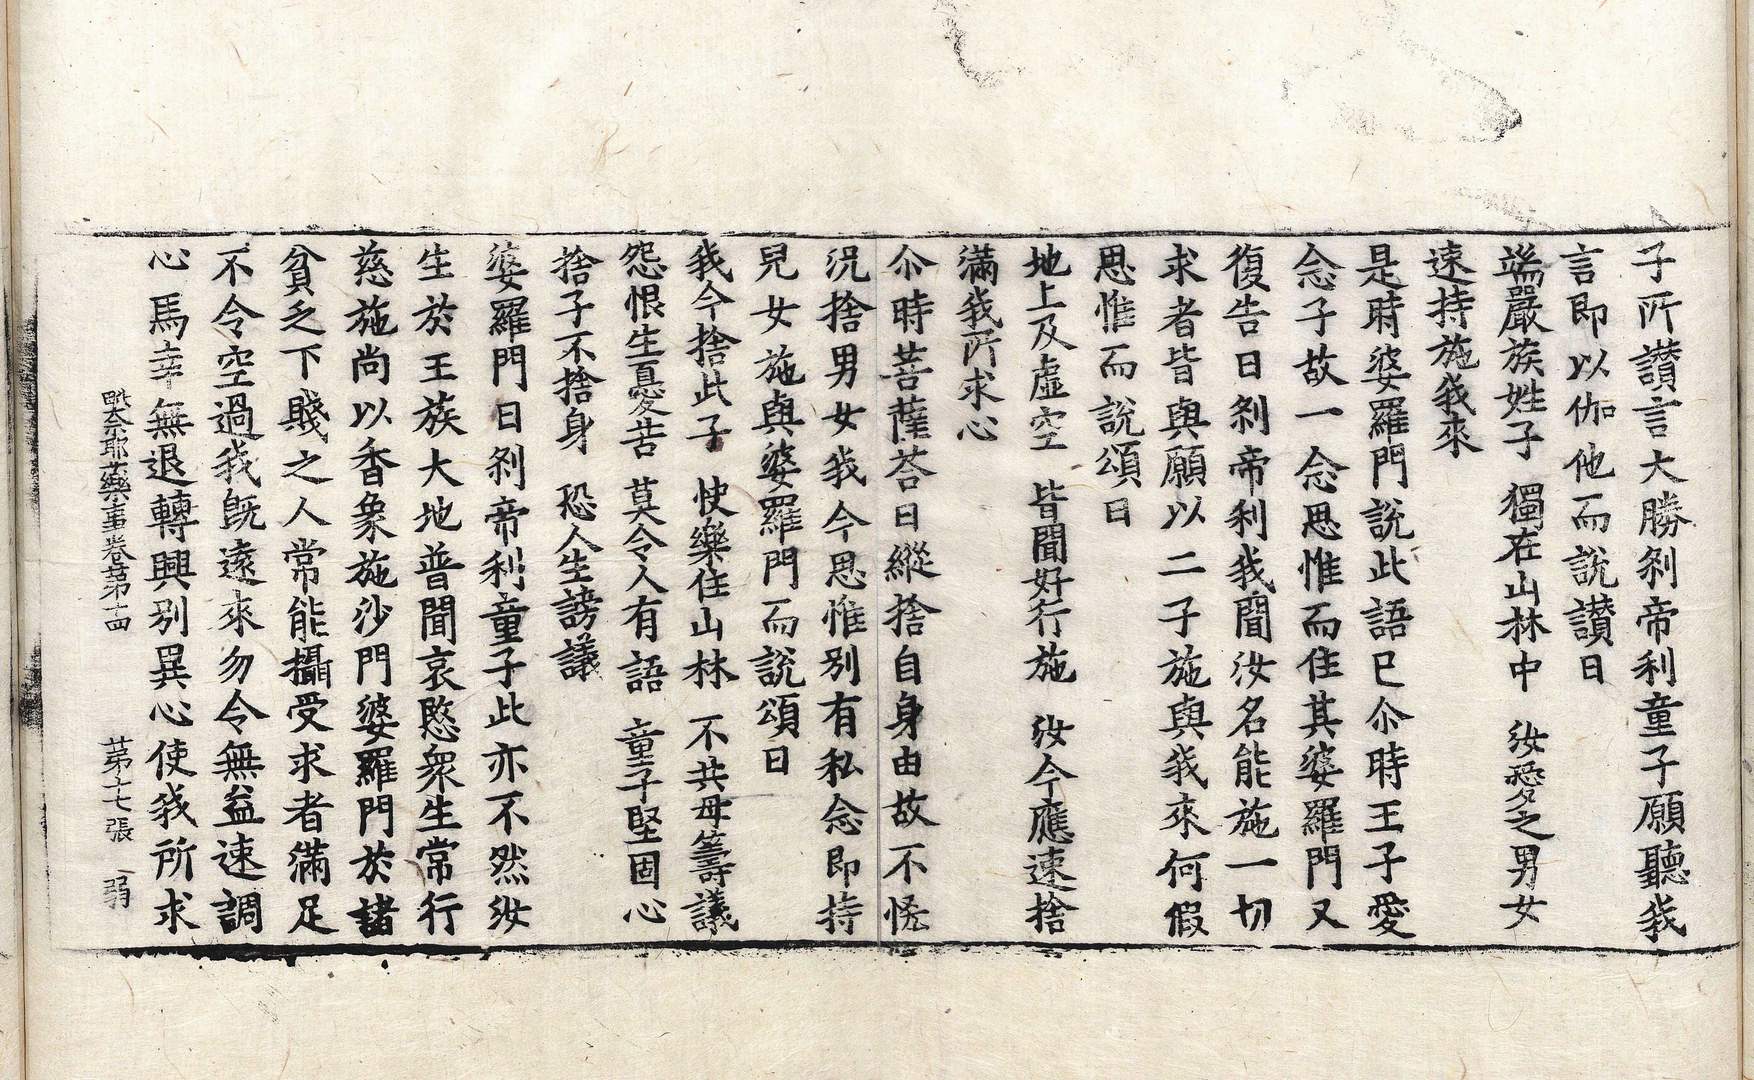 子所讃言大勝刹帝利童子願聽我
言即以伽他而說讃曰
端嚴族姓子　獨在山林中　汝愛之男女
速持施我來
是時婆羅門說此語已尒時王子愛
念子故一念思惟而住其婆羅門又
復告曰刹帝利我聞汝名能施一切
求者皆與願以二子施與我來何假
思惟而說頌曰
地上及虛空　皆聞好行施　汝今應速捨
滿我所求心
尒時菩薩荅曰縱捨自身由故不恡
況捨男女我今思惟別有私念即持
兒女施與婆羅門而說頌曰
我今捨此子　快樂住山林　不共母籌議
怨恨生憂苦　莫令人有語　童子堅固心
捨子不捨身　恐人生謗議
婆羅門曰刹帝利童子此亦不然汝
生於王族大地普聞哀愍衆生常行
慈施尚以香象施沙門婆羅門於諸
貧乏下賤之人常能攝受求者滿足
不令空過我旣遠來勿令無益速調
心馬幸無退轉興別異心使我所求
毗奈耶藥事卷第十四　第十七張　弱